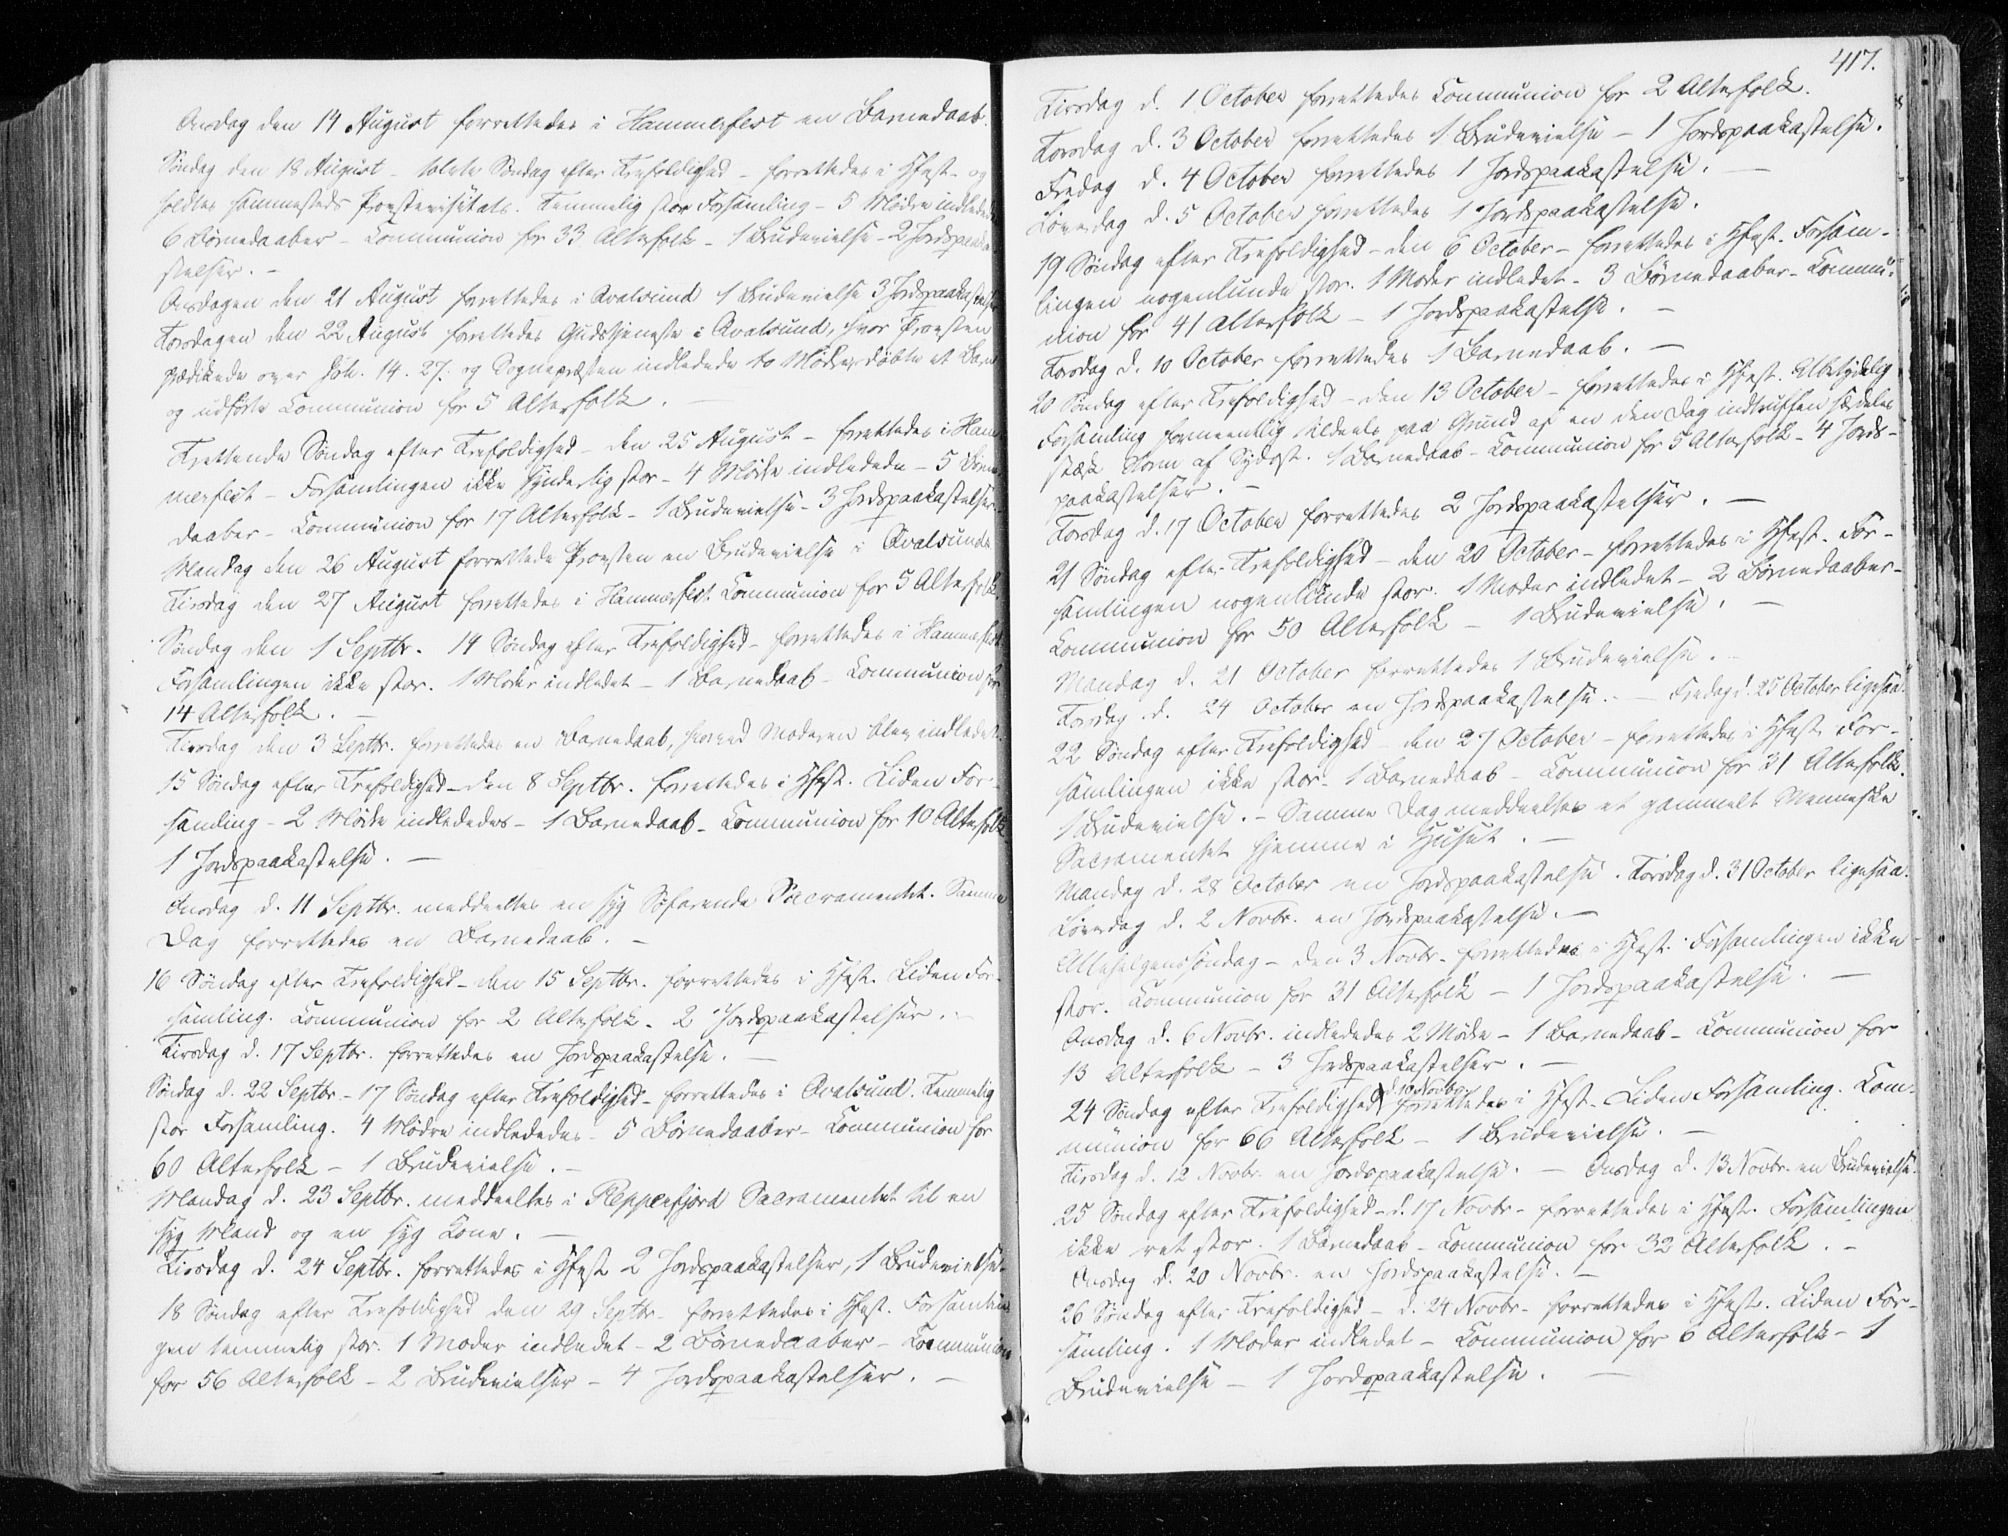 Onsdag den 14 August forrettedes i Hammerfest en Barnedaab.
Søndag den 18 August - tolvte Søndag efter Trefoldighed - forrettedes i Hfest - og
holdtes sammesteds Provstevisitats. Temmelig stor Forsamling - 5 Mødre indlededes
6 Børnedaaber - Communion for 33 Altersfolk - 1 Brudevielse - 2 Jordspaaka-
stelser. -
Onsdagen den 21 August forrettedes i Qvalsund 1 Brudevielse 3 Jordspaakastelser
Torsdagen den 22 August forrettedes Gudstjeneste i Qvalsund, hvor Provsten
prædikede over Joh. 14. 27. og Sognepræsten indledede to Mødre, døbte et Barn
og udførte Communion for 5 Altersfolk. -
Trettende Søndag efter Trefoldighed - den 25 August - forrettedes i Ham-
merfest - Forsamlingen ikke synderlig stor - 4 Mødre indledede - 5 Børne-
daaber - Communion for 17 Altersfolk - 1 Brudevielse - 3 Jordspaakastelser.
Mandag den 26 August forrettede Provsten en Brudevielse i Qvalsund.
Tirsdag den 27 August forrettedes i Hammerfest Communion for 5 Altersfolk.
Søndag den 1 Septbr. 14 Søndag efter Trefoldighed - forrettedes i Hammerfest
Forsamlingen ikke stor. 1 Moder indledet - 1 Barnedaab - Communion for
14 Altersfolk. -
Tirsdag den 3 Septbr. forrettedes en Barnedaab, hvorved Moderen blev indledet.
15 Søndag efter Trefoldighed - den 8 Septbr. forrettedes i Hfest. Liden For-
samling - 2 Mødre indlededes - 1 Barnedaab - Communion for 10 Altersfolk
1 Jordspaakastelse. -
Onsdag d. 11 Septbr. meddeeltes en syg Søfarende Sacramentet. Samme
Dag forrettedes en Barnedaab. -
16 Søndag efter Trefoldighed - den 15 Septbr. forrettedes i Hfest. Liden For-
samling. Communion for 2 Altersfolk. 2 Jordspaakastelser. -
Tirsdag d. 17 Septbr. forrettedes en Jordspaakastelse. -
Søndag d. 22 Septbr. - 17 Søndag efter Trefoldighed - forrettedes i Qvalsund. Temmelig
stor Forsamling. 4 Mødre indlededes - 5 Børnedaaber - Communion for
60 Altersfolk - 1 Brudevielse. -
Mandag d. 23 Septbr. meddeeltes i Reppenfjord Sacramentet til en
syg Mand og en syg Kone. -
Tirsdag d. 24 Septbr. forrettedes i Hfest 2 Jordspaakastelser, 1 Brudevielse.
18 Søndag efter Trefoldighed den 29 Septbr. forrettedes i Hfest. Forsamlin-
gen temmelig stor. 1 Moder indledet - 2 Børnedaaber - Communion
for 56 Altersfolk - 2 Brudevielser - 4 Jordspaakastelser. -
417.
Tirsdag d. 1 October forrettedes Communion for 2 Altersfolk.
Torsdag d. 3 October forrettedes 1 Brudevielse - 1 Jordspaakastelse.
Fredag d. 4 October forrettedes 1 Jordspaakastelse. -
Løverdag d. 5 October forrettedes 1 Jordspaakastelse.
19 Søndag efter Trefoldighed - den 6 October - forrettedes i Hfest. Forsam-
lingen nogenlunde stor. 1 Moder indledet - 3 Børnedaaber - Commu-
nion for 41 Altersfolk - 1 Jordspaakastelse. -
Torsdag d. 10 October forrettedes 1 Barnedaab. -
20 Søndag efter Trefoldighed - den 13 October - forrettedes i Hfest. Ubetydelig
Forsamling formeentlig tildeels paa Grund af en den Dag indtruffen særdeles
stærk Storm af Sydost. 1 Barnedaab - Communion for 5 Altersfolk - 4 Jords-
paakastelser. -
Torsdag d. 17 October forrettedes 2 Jordspaakastelser. -
21 Søndag efter Trefoldighed - den 20 October - forrettedes i Hfest. For-
samlingen nogenlunde stor. 1 Moder indledet - 2 Børnedaaber -
Communion for 50 Altersfolk - 1 Brudevielse. -
Mandag d. 21 October forrettedes 1 Brudevielse. -
Torsdag d. 24 October en Jordspaakastelse. - Fredag d. 25 October ligesaa.
22 Søndag efter Trefoldighed - den 27 October - forrettedes i Hfest. For-
samlingen ikke stor - 1 Barnedaab - Communion for 31 Altersfolk.
1 Brudevielse. - Samme Dag meddeeltes et gammelt Menneske
Sacramentet hjemme i Huset. -
Mandag d. 28 October en Jordspaakastelse. Torsdag d. 31 October ligesaa.
Løverdag d. 2 Novbr. en Jordspaakastelse. -
Allehelgenssøndag - den 3 Novbr. forrettedes i Hfest. Forsamlingen ikke
stor. Communion for 31 Altersfolk - 1 Jordspaakastelse. -
Onsdag d. 6 Novbr. indlededes 2 Mødre - 1 Barnedaab - Communion for
13 Altersfolk - 3 Jordspaakastelser. -
24 Søndag efter Trefoldighed d. 10 Novbr. forrettedes i Hfest. Liden Forsamling. Com-
munion for 66 Altersfolk - 1 Brudevielse. -
Tirsdag d. 12 Novbr. en Jordspaakastelse. - Onsdag d. 13 Novbr. en Brudevielse.
25 Søndag efter Trefoldighed - d. 17 Novbr. - forrettedes i Hfest. Forsamlingen
ikke ret stor. 1 Barnedaab - Communion for 32 Altersfolk. -
Onsdag d. 20 Novbr. en Jordspaakastelse. -
26 Søndag efter Trefoldighed - d. 24 Novbr. forrettedes i Hfest. Liden For-
samling. 1 Moder indledet - Communion for 6 Altersfolk - 1
Brudevielse - 1 Jordspaakastelse. -